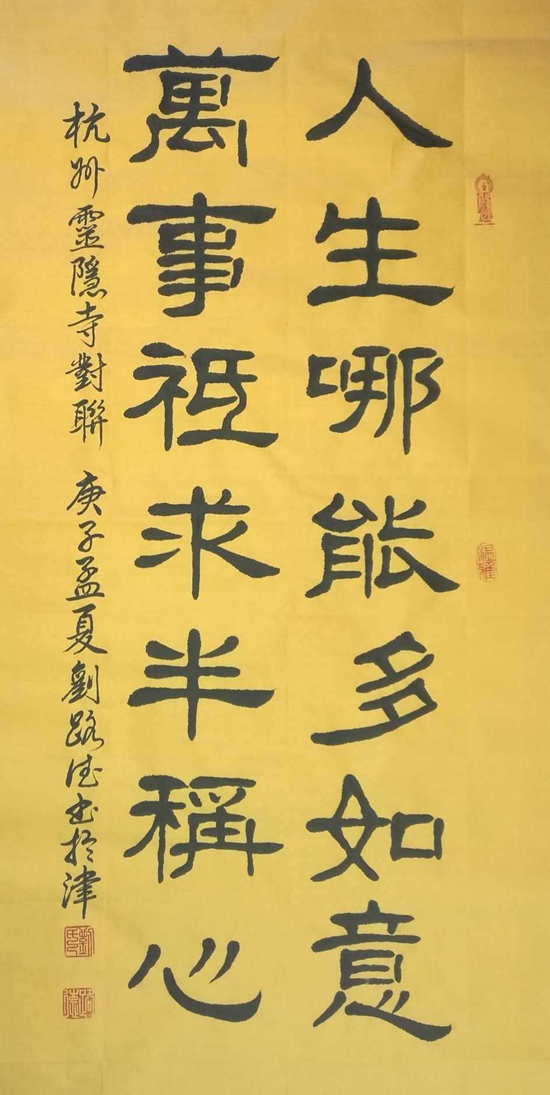 人生哪能多如意
萬事祗求半稱心
杭州靈隱寺對聯 庚子孟夏劉路德書於津